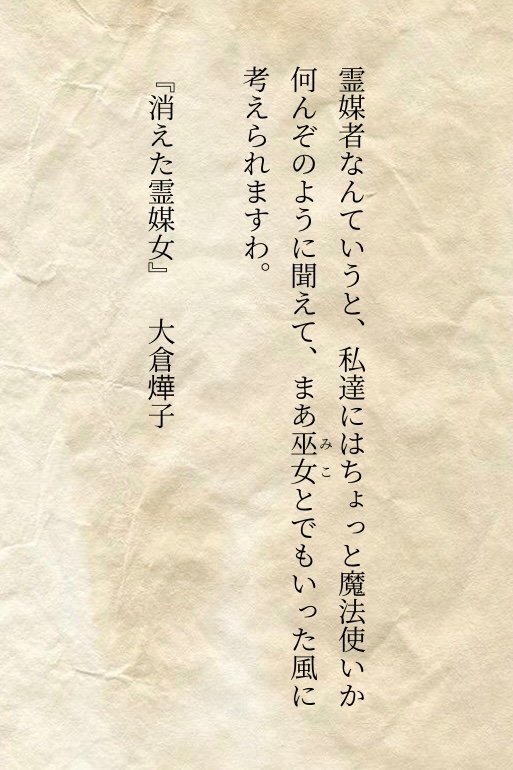 霊媒者なんていうと、私達にはちょっと魔法使いか
何んぞのように聞えて、まあ巫女とでもいった風に
みこ
考えられますわ。
『消えた霊媒女』 大倉燁子